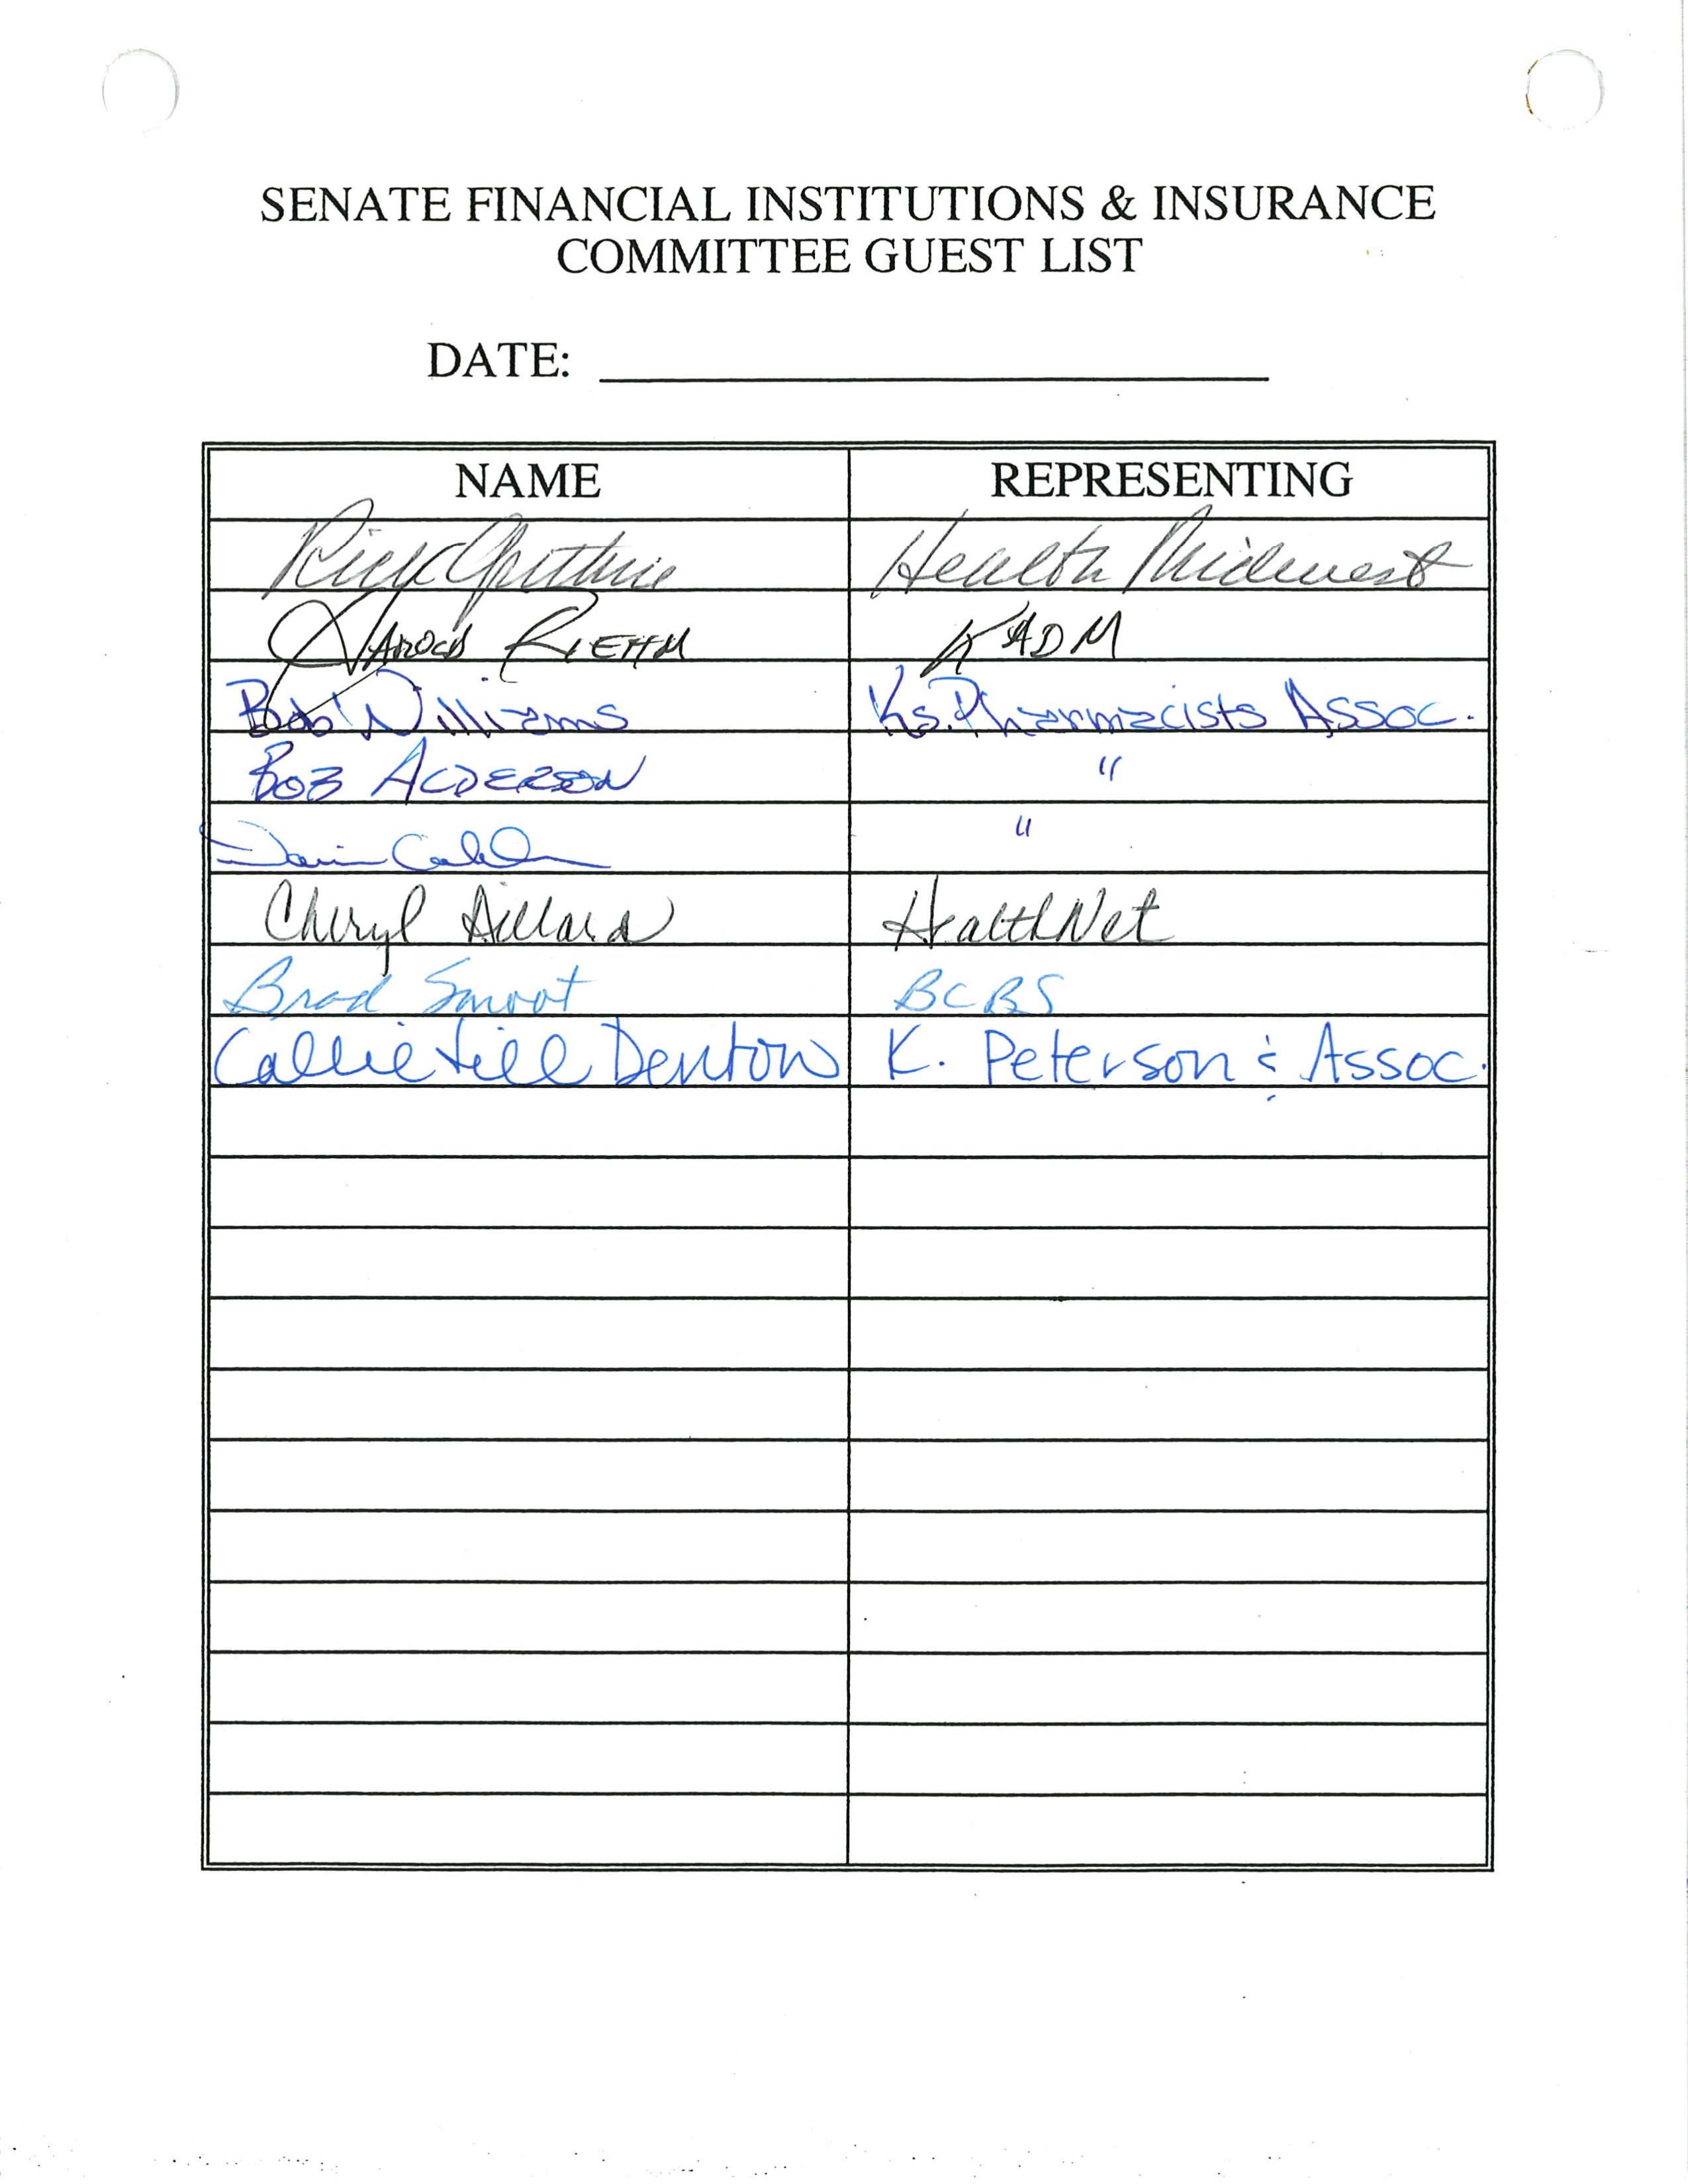 SENATE FINANCIAL INSTITUTIONS & INSURANCE
COMMITTEE GUEST LIST
DATE:
NAME REPRESENTING
Rick Guthrie Health Midwest
Harold Riehm KADM
Bob Williams Ks. Pharmacists Assoc.
Bob Alderson "
"
Cheryl Dillard HealthNet
Brad Smoot BCBS
Callie Jill Denton K. Peterson & Assoc.